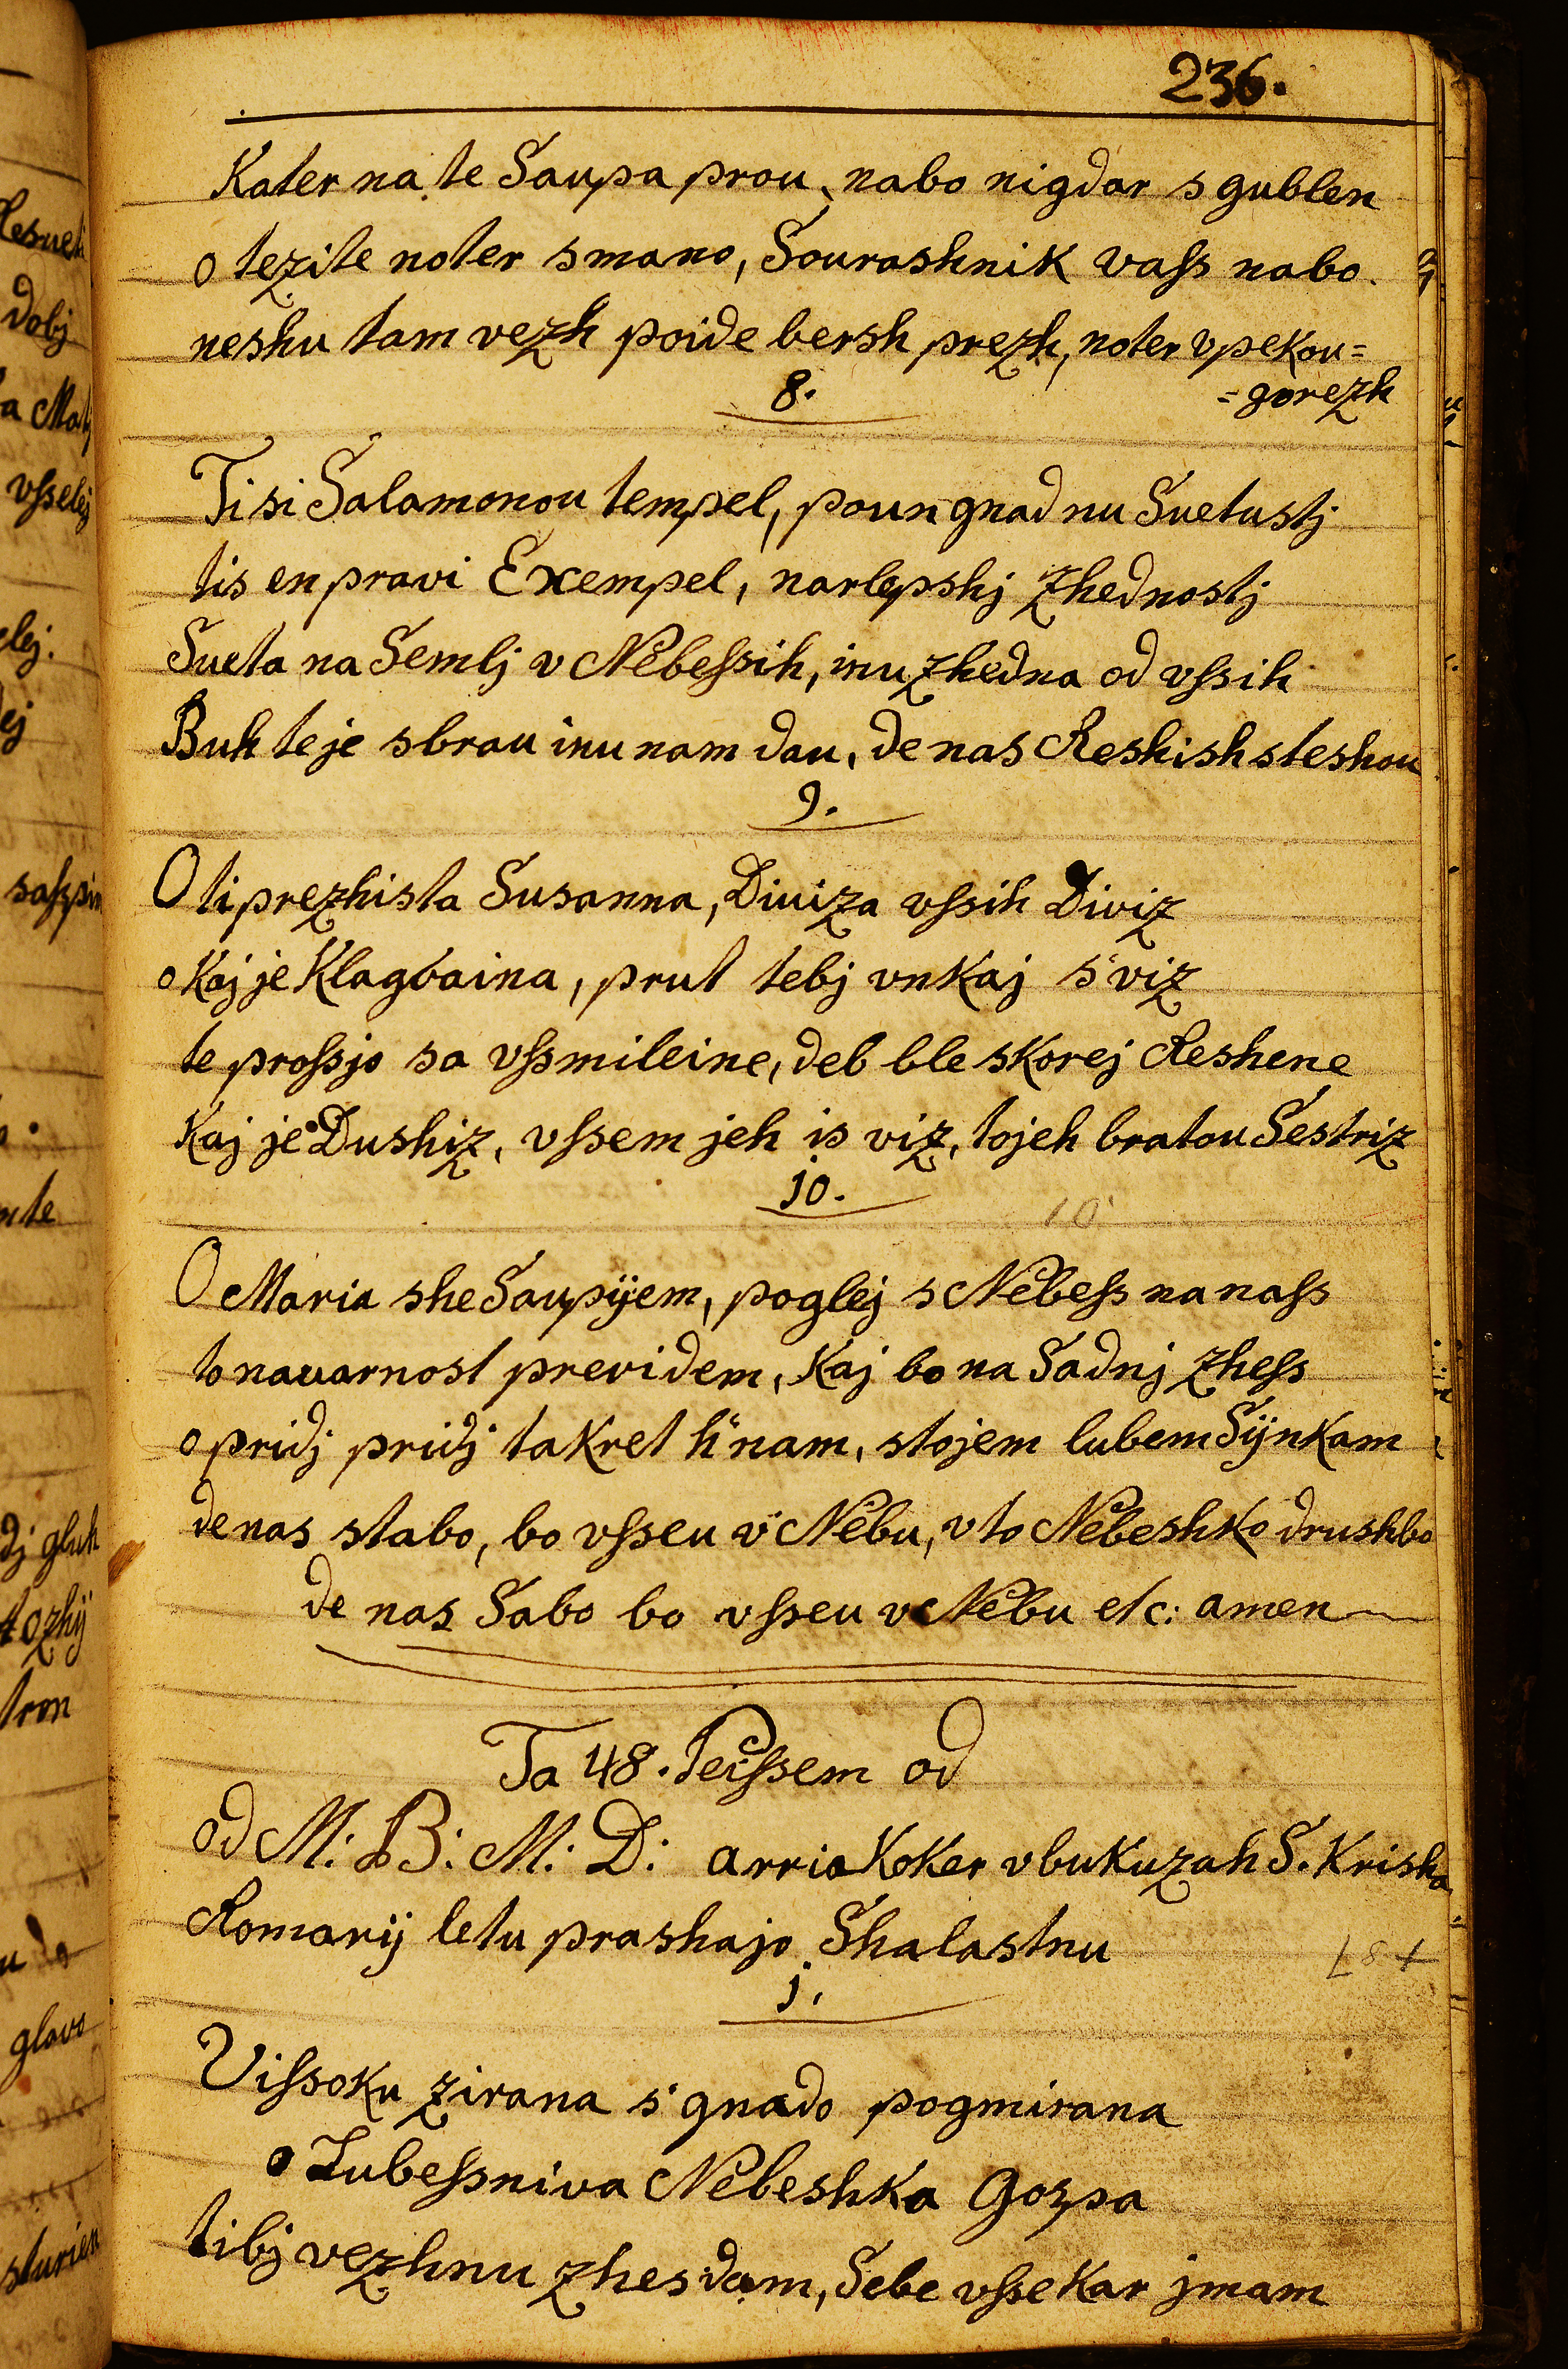 236.
Kater na te Saupa prou, nabo nigdar sgublen
o tezite noter smano, Sourashnik vass nabo.
neshu tam vezh poide bersh prezh, noter vpekou=
=gorezh
8.
Ti si Salamonou tempel, poun gnad nu Suetustj
tis en pravi Exempel, narlepshj zhednostj
Sueta na Semlj v Nebessih, inu zhedna od vssih
Buh te je sbrau inu nam dau, de nas Reshish steshou
9.
O ti prezhista Susanna, Diviza vssih Diviz
o kaj je Klagvaina, prut tebj vnkaj s'viz
te prossjo sa vssmileine, deb ble skorej Reshene
kaj je Dushiz, vssem jeh is viz, tojeh bratou Sestriz
10.
10.
O Maria she Saupÿem, poglej s Nebess na nass
to navarnost previdem, kaj bo na Sadnj zhess
o pridj pridj takret h'nam, stojem lubem Sÿnkam
de nas stabo, bo vsseu v' Nebu, vto Nebeshko drushbo
de nas Sabo bo vsseu v Nebu etc: amen
Ta 48. Peissem od
od M: B: M: D: arria koker vbukuzah S. Krisha
Romarÿ letu prashajo Shalastnu
1.
Vissoku zirana s' gnado pogmirana
o Lubessniva Nebeshka Gospa
tibj vezhnu zhes dam, Sebe vsse kar jmam